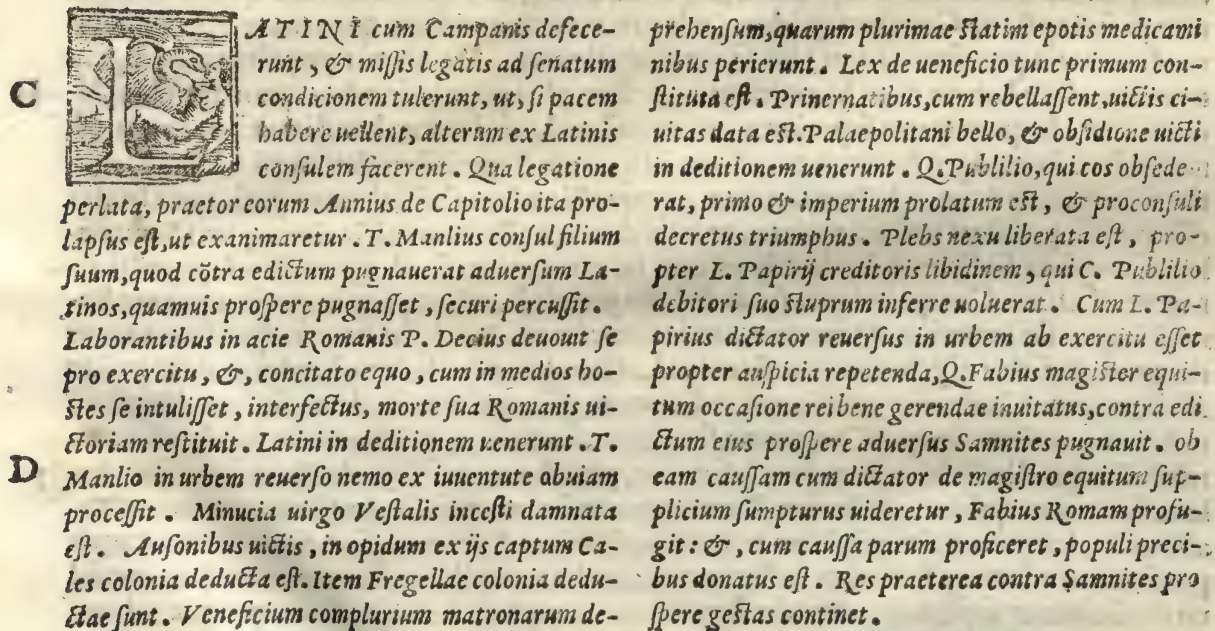 LATINI cum Campanis defece-
runt, & missis legatis ad senatum
C
condicionem tulerunt, ut, si pacem
habere uellent, alterum ex Latinis
consulem facerent. Qua legatione
perlata, praetor eorum Annius de Capitolio ita pro-
lapsus est, ut exanimaretur. T. Manlius consul filium
suum, quod cõtra edictum pugnauerat aduersum La-
tinos, quamuis prospere pugnasset, securi percussit.
Laborantibus in acie Romanis P. Decius deuouit se
pro exercitu, &, concitato equo, cum in medios ho-
stes se intulisset, interfectus, morte sua Romanis ui-
ctoriam restituit. Latini in deditionem uenerunt. T.
D
Manlio in urbem reuerso nemo ex iuuentute obuiam
processit. Minucia uirgo Vestalis incesti damnata
est. Ausonibus uictis, in opidum ex ijs captum Ca-
les colonia deducta est. Item Fregellae colonia dedu-
ctae sunt. Veneficium complurium matronarum de-
prehensum, quarum plurimae statim epotis medicami
nibus perierunt. Lex de ueneficio tunc primum con-
stituta est. Priuernatibus, cum rebellassent, uictis ci-
uitas data est. Palaepolitani bello, & obsidione uicti
in deditionem uenerunt. Q. Publilio, qui eos obsede-
rat, primo & imperium prolatum est, & proconsuli
decretus triumphus. Plebs nexu liberata est, pro-
pter L. Papirij creditoris libidinem, qui C. Publilio
debitori suo stuprum inferre uoluerat. Cum L. Pa-
pirius dictator reuersus in urbem ab exercitu esset
propter auspicia repetenda, Q. Fabius magister equi-
tum occasione rei bene gerendae inuitatus, contra edi
ctum eius prospere aduersus Samnites pugnauit. ob
eam caussam cum dictator de magistro equitum sup-
plicium sumpturus uideretur, Fabius Romam profu-
git: &, cum caussa parum proficeret, populi preci-
bus donatus est. Res praeterea contra Samnites pro
spere gestas continet.